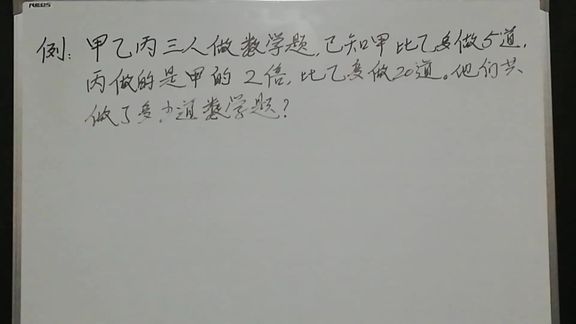 NEOS
例：甲乙丙三人做数学题，已知甲比乙多做5道，
丙做的是甲的2倍，比乙多做20道。他们共
做了多少道数学题？